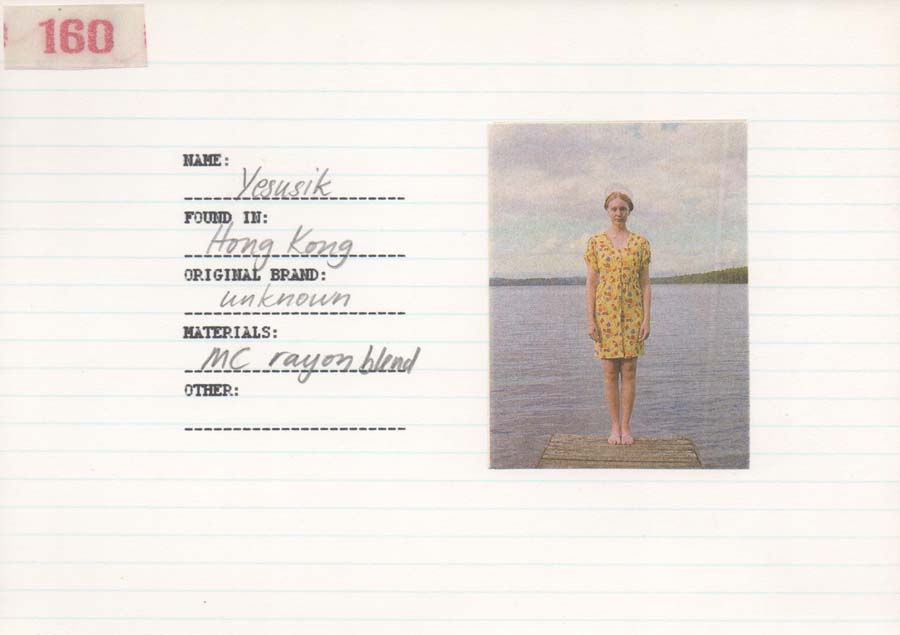 160
NAME:
Yesusik
FOUND IN:
Hong Kong
ORIGINAL BRAND:
unknown
MATERIALS:
MC rayon blend
OTHER: